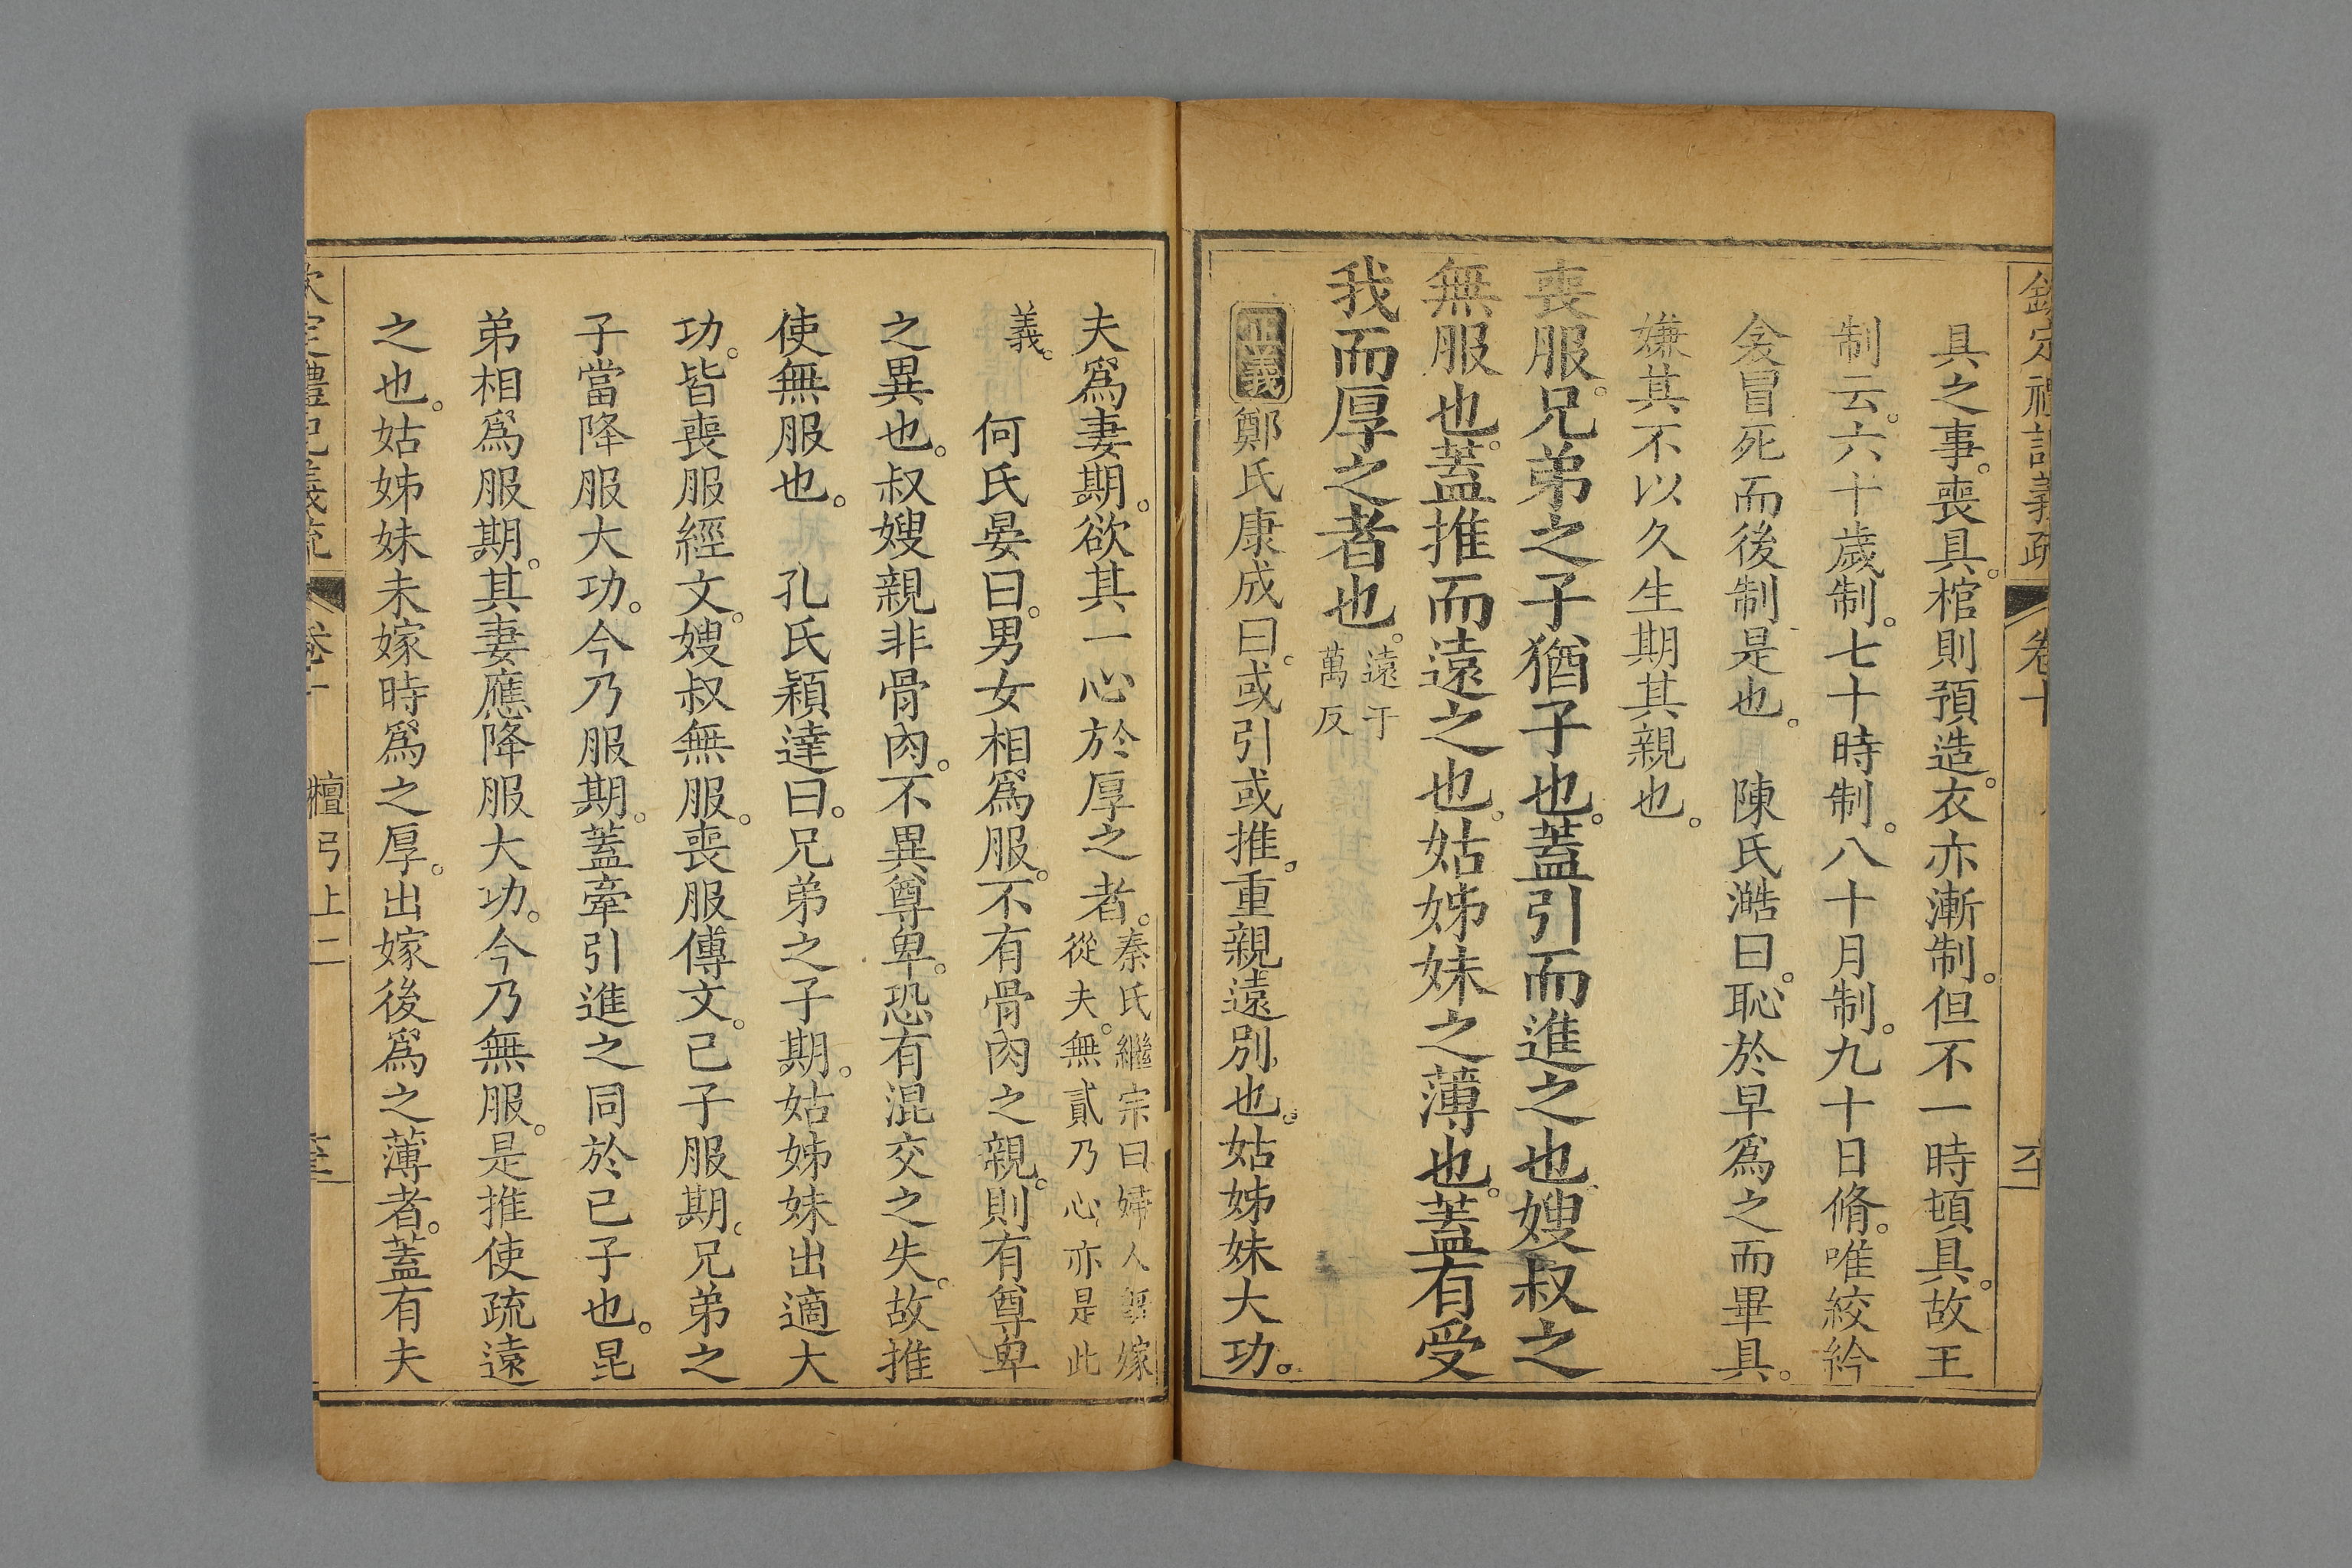 欽定禮記義疏 卷十
具之事。喪具。棺則預造。衣亦漸制。但不一時頓具。故王
制云。六十歲制。七十時制。八十月制。九十日脩。唯絞紟
衾冒死而後制是也。 陳氏澔曰。恥於早爲之而畢具。
嫌其不以久生期其親也。
喪服。兄弟之子猶子也。蓋引而進之也。嫂叔之
無服也。蓋推而遠之也。姑姊妹之薄也。蓋有受
我而厚之者也。遠于
萬反
正義 鄭氏康成曰。或引或推。重親遠別也。姑姊妹大功。
夫爲妻期。欲其一心於厚之者。秦氏繼宗曰婦人嫁
從夫。無貳乃心亦是此
義。 何氏晏曰。男女相爲服。不有骨肉之親。則有尊卑
之異也。叔嫂親非骨肉。不異尊卑。恐有混交之失。故推
使無服也。 孔氏穎達曰。兄弟之子期。姑姊妹出適大
功。皆喪服經文。嫂叔無服。喪服傳文。己子服期。兄弟之
子當降服大功。今乃服期。蓋牽引進之同於已子也。昆
弟相爲服期。其妻應降服大功。今乃無服。是推使疏遠
之也。姑姊妹未嫁時爲之厚。出嫁後爲之薄者。蓋有夫
欽定禮記義疏 卷十 檀弓上二